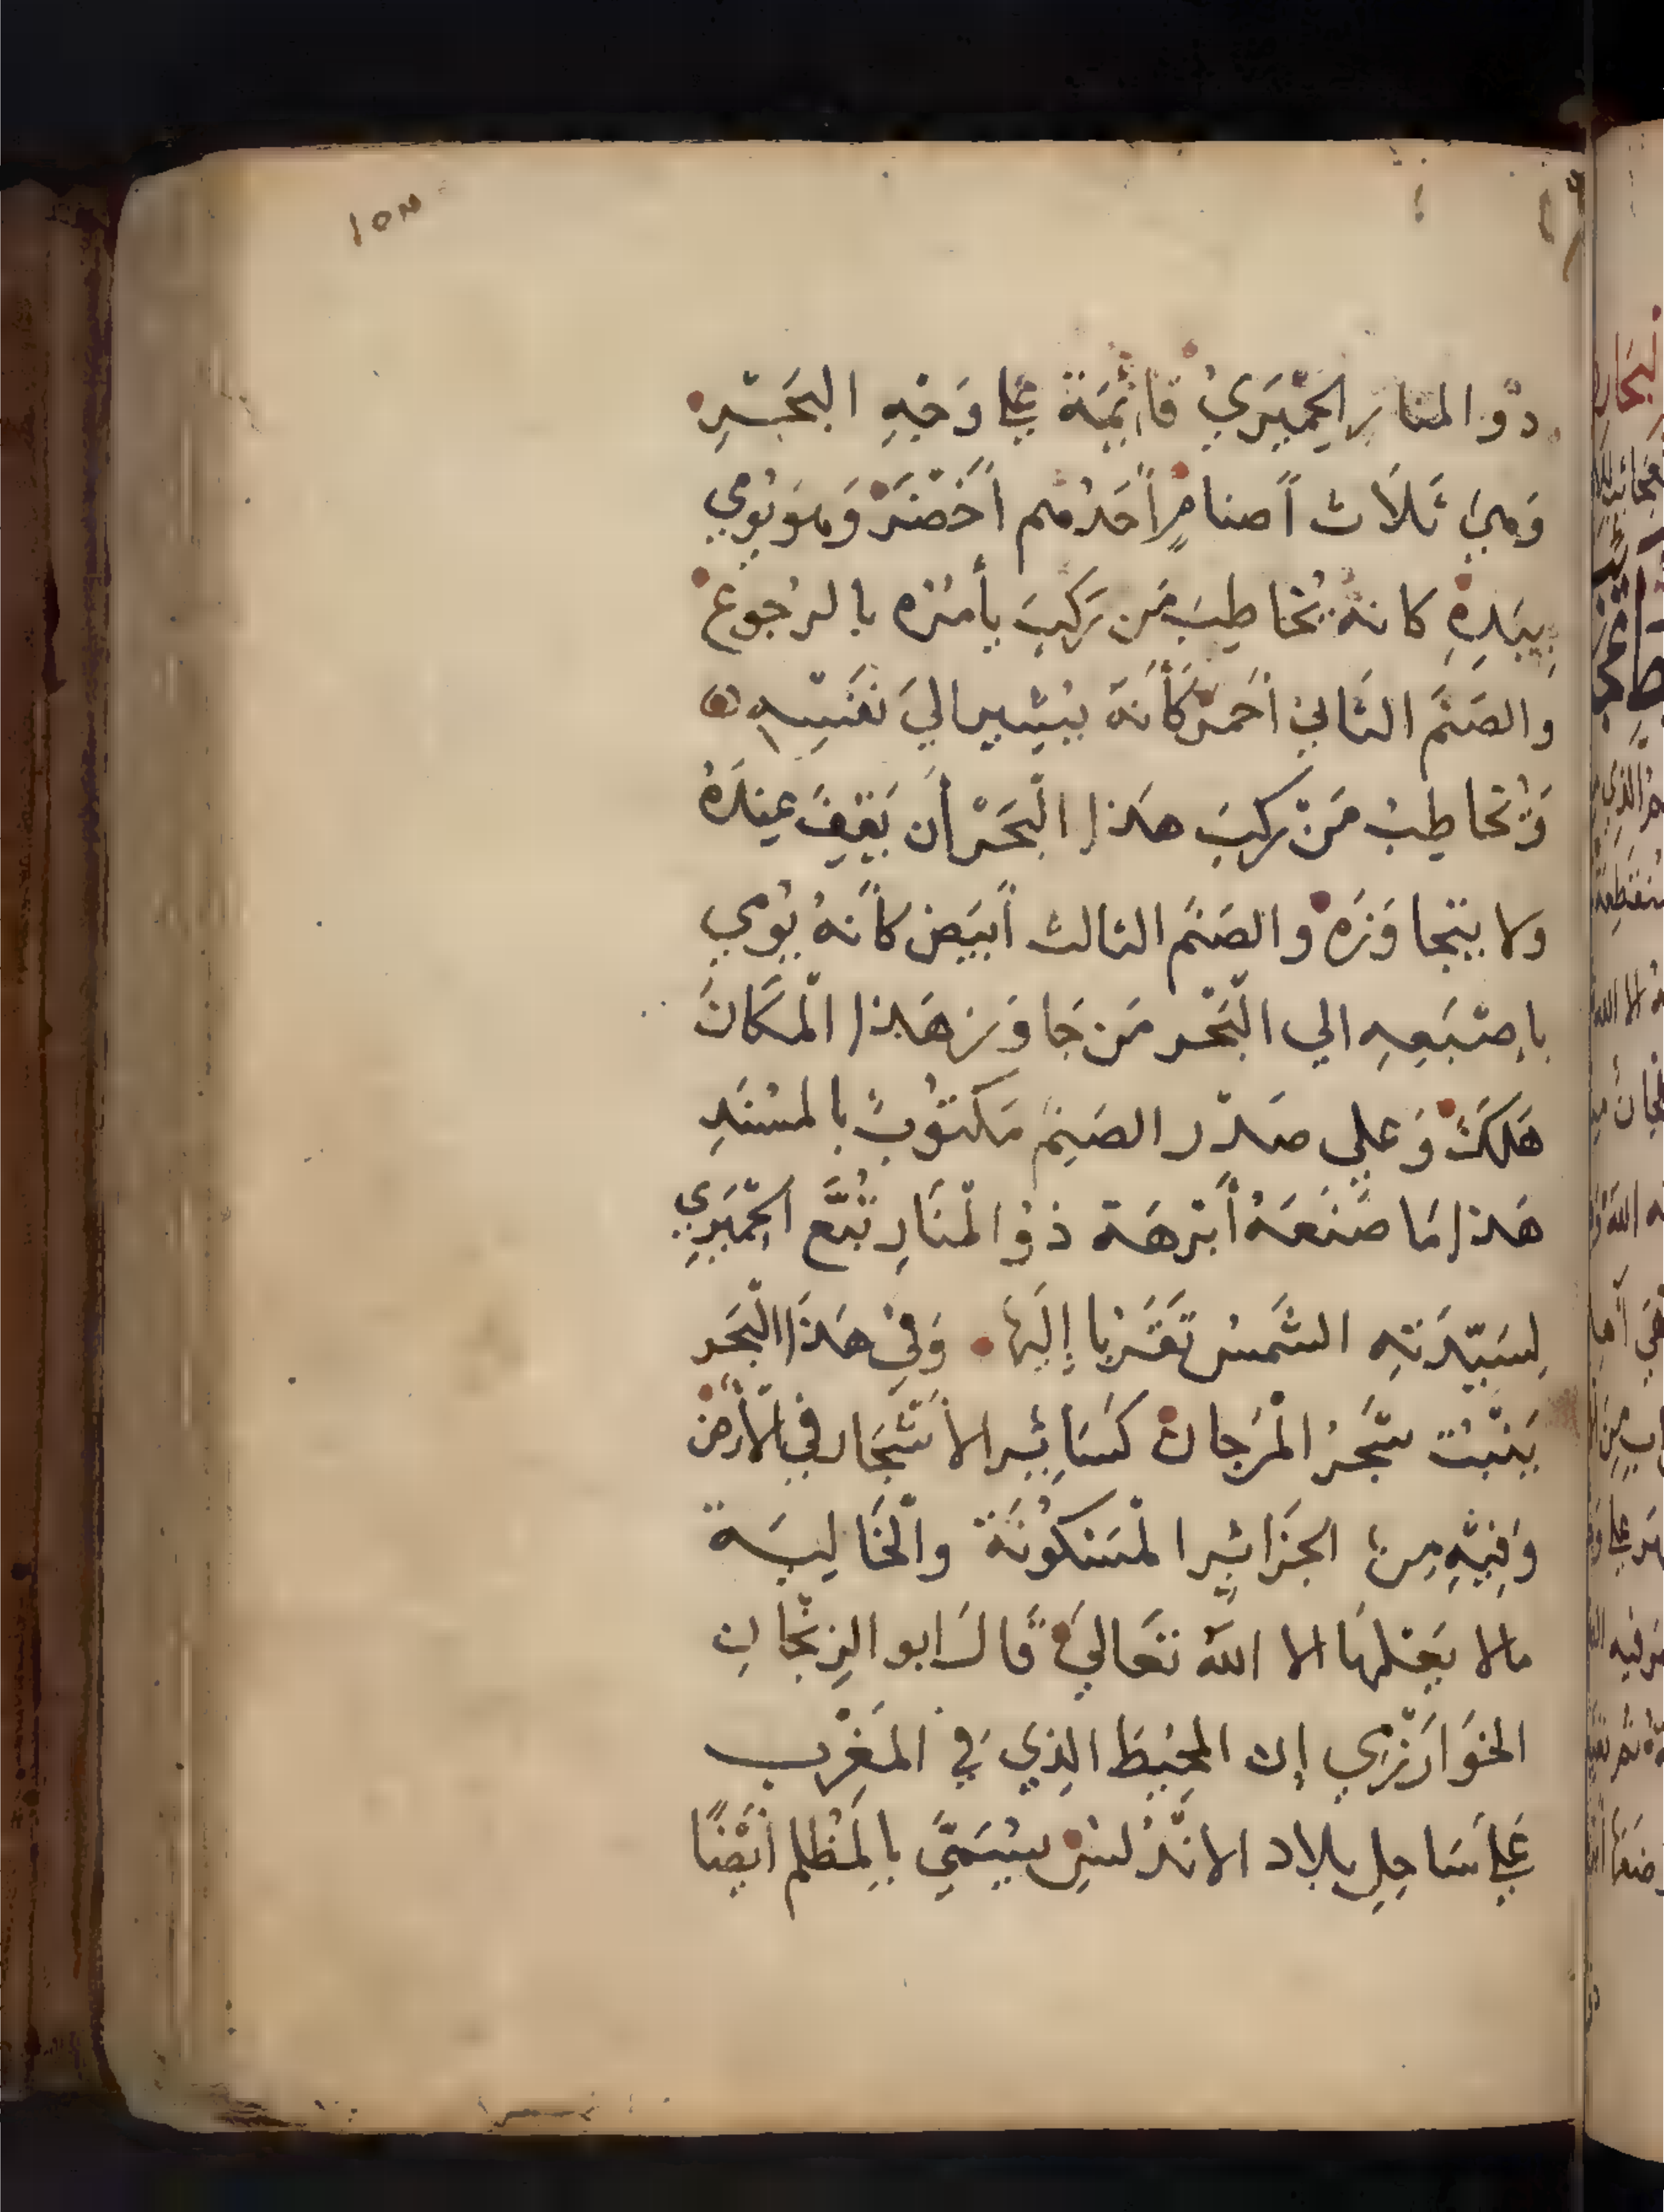 ١٥٣
ذُو المنارِ الحِمْيَرِيُّ قَائِمَةٌ عَلَى وَجْهِ البَحْرِ
وَهِيَ ثَلَاث أَصنامٍ أَحَدُهم أَخْضَرُ وَهوَ يُومي
بِيَدِهِ كانهُ يُخاطِبُ مَن رَكِبَ يأمُرُه بالرُجوع
والصَنَمَ الثَانِي أَحْمَرُ كَأَنَهُ يُشِيرُ اليَ نَفْسِهِ
وَيُخاطِبُ مَنْ رَكِبَ هَذا الْبَحْرَ أَن يَقِفَ عِندَهُ
ولا يتجاوَزَه والصَنَم الثالث أَبْيَض كأَنهُ يُومي
بإِصْبَعِهِ الي الْبَحْر مَن جَاوَزَ هَذا الْمَكَانَ
هَلَكَ وَعلي صَدْر الصَنِم مَكْتُوبٌ بالمسْنَدِ
هَذا مَا صَنَعَهُ أَبْرَهَة ذُو الْمَنَارِ تُبَّع الحِمْيَرِي
لِسَيّدَتِهِ الشَمْس تَقَرُبا إِلَيْهَا وَفِي هَذَا الْبَحَر
يَنْبُت شَجَرُ الْمَرْجان كَسَائِر الأَشْجَار فِي الْأَرض
وَفِيْهِ مِن الجَزَائِر الْمَسْكُونَة والْخَالِيَة
مالا يَعْلَمهَا الا اللّه تَعَاليَ قَالَ ابو الرِيْحَان
الخَوَارَزْمِي إن المحيْطَ الذِي فِي المَغْرِب
عَلَي سَاحِلِ بِلاد الانْدُلسِ يُسَمَّيَ بالْمُظْلم أَيْضًا